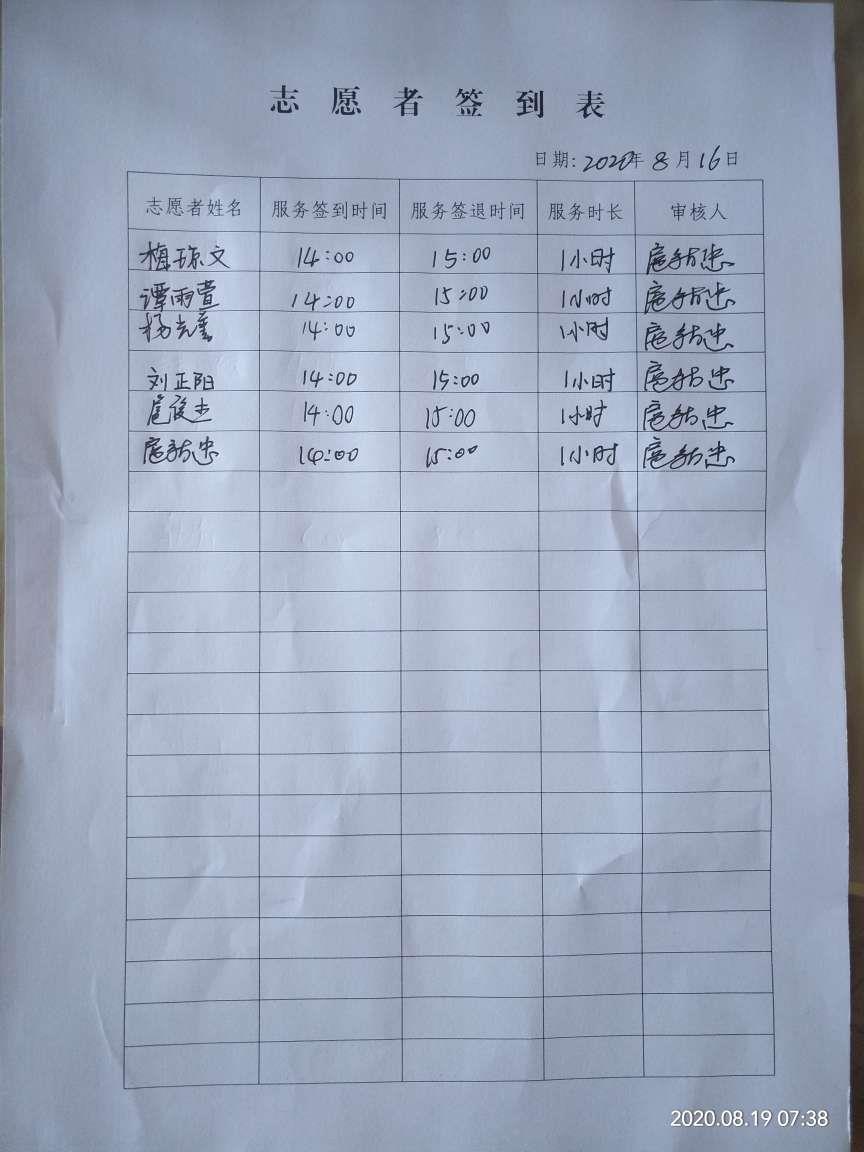 志愿者签到表
日期:2020年8月16日
志愿者姓名 服务签到时间 服务签退时间 服务时长 审核人
梅琼文 14:00 15:00 1小时
谭雨萱 14:00 15:00 1小时
14:00 15:00 1小时
刘正阳 14:00 15:00 1小时
14:00 15:00 1小时
14:00 15:00 1小时
2020.08.19 07:38